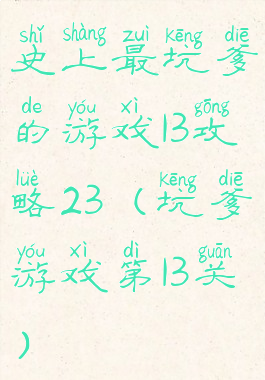 shǐ shàng zuì kēng diē
史上最坑爹
de yóu xì gōng
的游戏13攻
lüè kēng diē
略23（坑爹
yóu xì dì guān
游戏第13关
）